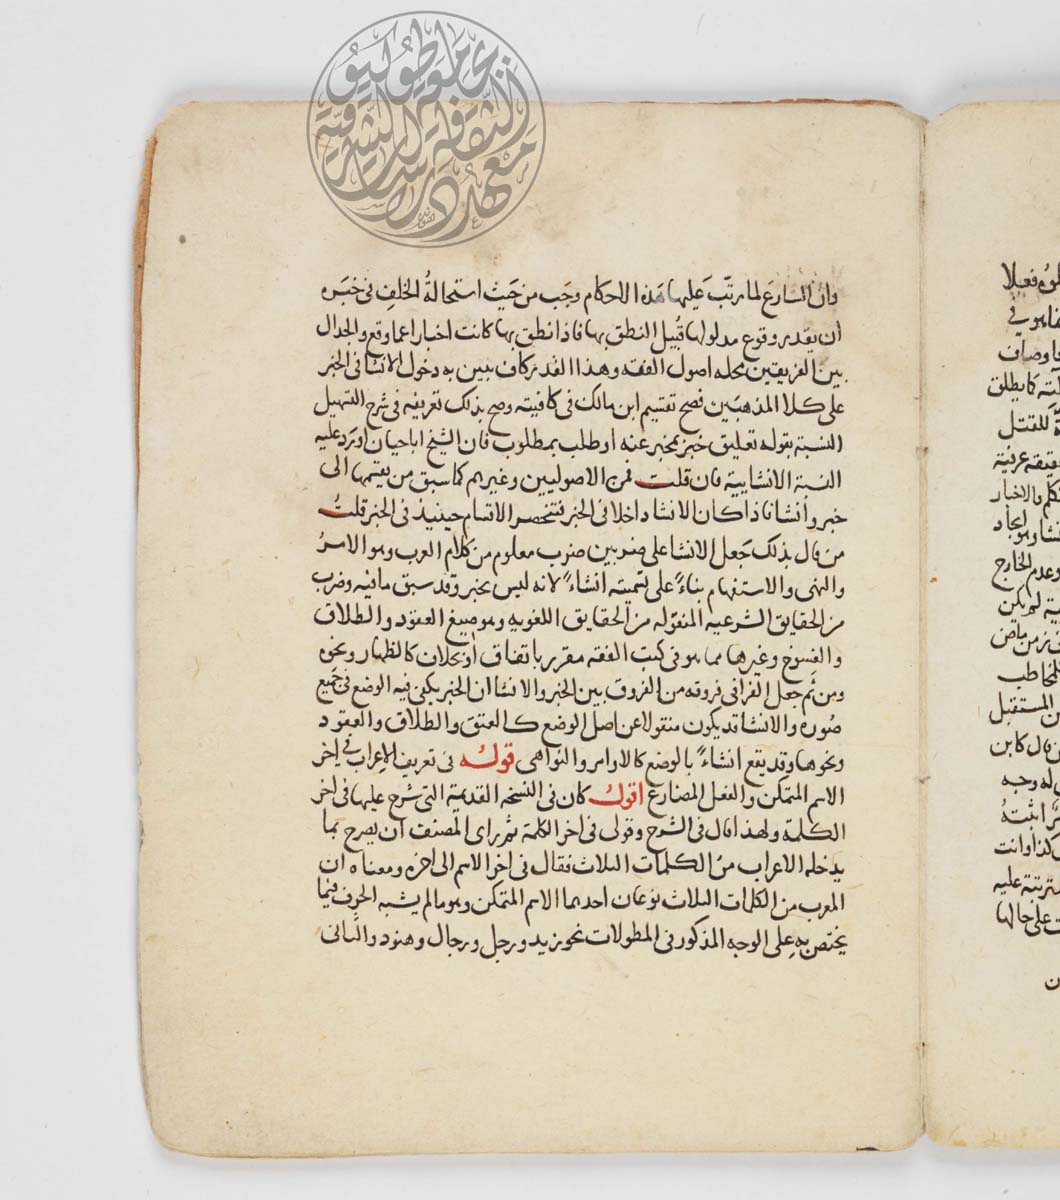 وان الشارع لما رتب عليها هذه الاحكام وجب من حيث استحالة الخلف فى خبره
ان يقدر وقوع مدلولها قبيل النطق بها فاذا نطق بها كانت اخبارا عما وقع والجدال
بين الفريقين محله اصول الفقه وهذا القدر كاف يبين به دخول الانشا فى الخبر
على كلا المذهبين فصح تقسيم ابن مالك فى كافيته وصح بذلك تعريفه فى شرح التسهيل
النسبة بقوله تعليق خبر بمخبر عنه او طلب بمطلوب فان الشيخ اباحيان اورد عليه
النسبة الانشايية فان قلت فمن الاصوليين وغيرهم كما سبق من يقسمها الى
خبر وانشا فاذا كان الانشا داخلا فى الخبر فتنحصر الاقسام حينيذ فى الخبر قلت
من قال بذلك جعل الانشا على ضربين ضرب معلوم من كلام العرب وهو الامر
والنهى والاستفهام بناء على تسميته انشاء لانه ليس بخبر وقد سبق مافيه وضرب
من الحقايق الشرعيه المنقوله من الحقايق اللغويه وهو صيغ العقود والطلاق
والفسوخ وغيرها مما هو فى كتب الفقه مقرر باتفاق او بخلاف كالظهار ونحوه
ومن ثم جعل القرافى فروقه من الفروق بين الخبر والانشا ان الخبر يكفى فيه الوضع فى جميع
صوره والانشا قد يكون منقولا عن اصل الوضع كالعتق والطلاق والعقود
ونحوها وقد يقع انشاء بالوضع كالاوامر والنواهى قوله فى تعريف الاعراب فى اخر
الاسم المتمكن والفعل المضارع اقول كان فى النسخه القديمة التى شرح عليها فى اخر
الكلمة ولهذا قال فى الشرح وقولى فى اخر الكلمة ثم راى المصنف ان يصرح بما
يدخله الاعراب من الكلمات الثلاث فقال فى اخر الاسم الى اخره ومعناه ان
المعرب من الكلمات الثلاث نوعان احدهما الاسم المتمكن وهو مالم يشبه الحرف فيما
يختص به على الوجه المذكور فى المطولات نحو زيد ورجل ورجال وهنود والثانى